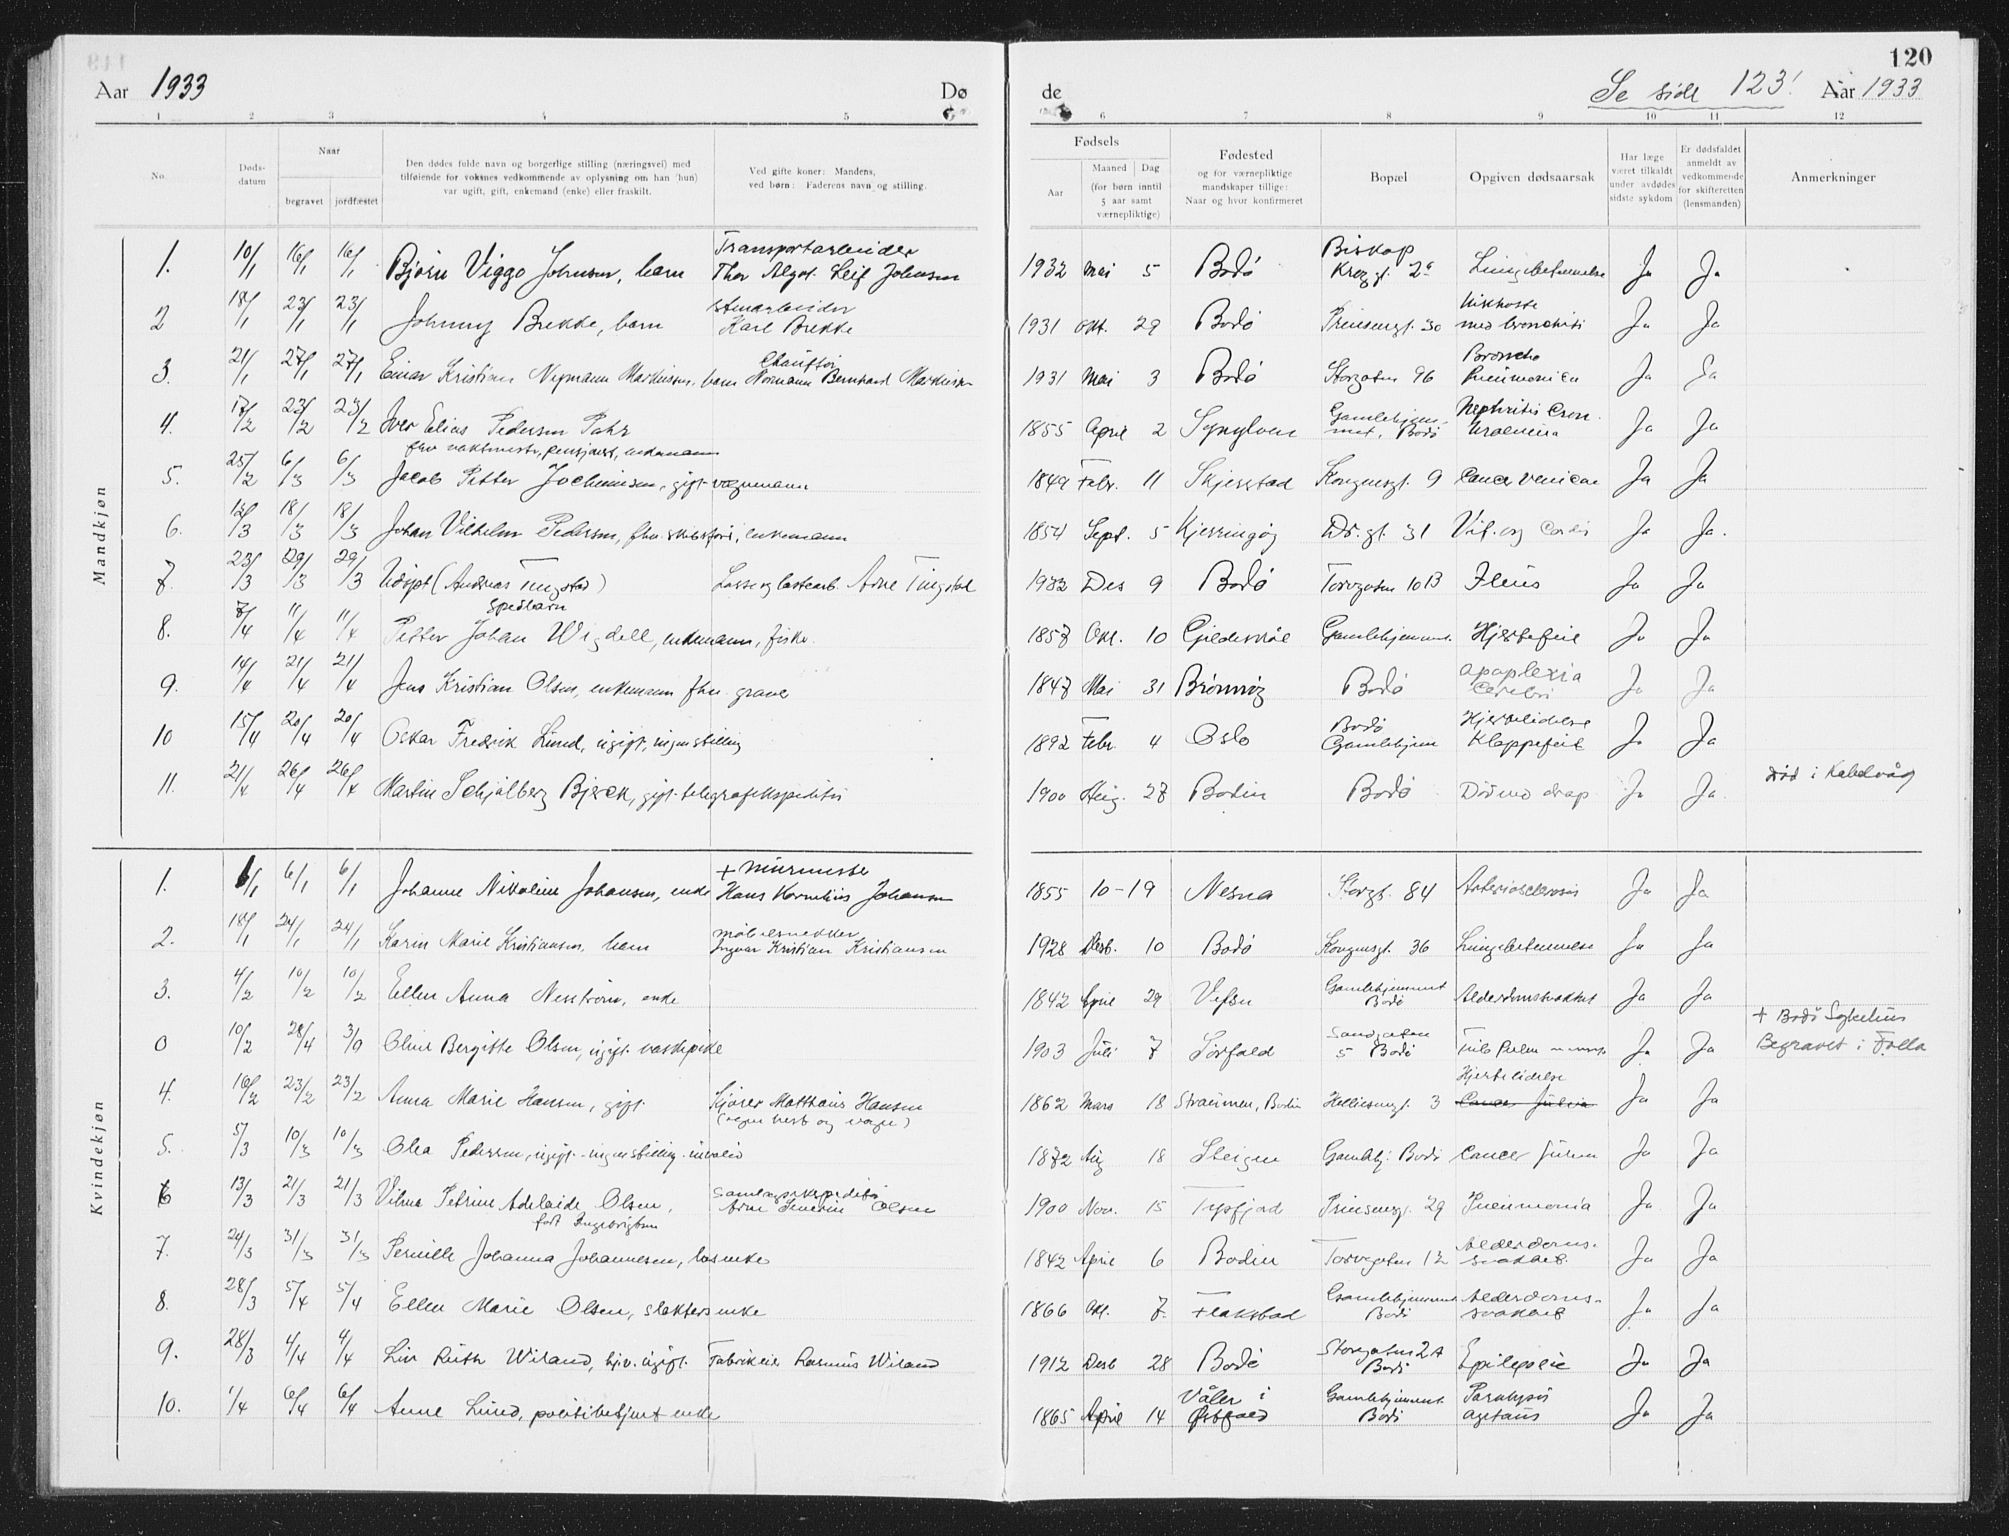 Aar 1933
Dø
de
Se side 123!
Aar 1933
120
1 2 3 4 5 6 7 8 9 10 11 12
No.
Døds-
datum
Naar
begravet jordfæstet
Den dødes fulde navn og borgerlige stilling (næringsvei) med
tilføiende for voksnes vedkommende av oplysning om han (hun)
var ugift, gift, enkemand (enke) eller fraskilt.
Ved gifte koner: Mandens,
ved børn: Faderens navn og stilling.
Fødsels
Aar
Maaned Dag
(for børn inntil
5 aar samt
værnepliktige)
Fødested
og for værnepliktige
mandskaper tillige:
Naar og hvor konfirmeret
Bopæl
Opgiven dødsaarsak
Har læge
været tilkaldt
under avdødes
sidste sykdom
Er dødsfaldet
anmeldt av
vedkommende
for skifteretten
(lensmanden)
Anmerkninger
Mandkjøn
1. 10/1 16/1 16/1 Bjørn Viggo Johnsen, barn Transportarbeider Thor Algot Leif Johnsen 1932 Mai 5 Bodø Biskop Krog gt. 2a Lungebetennelse Ja Ja
2 18/1 23/1 23/1 Johnny Brekke, barn Karl Brekke 1931 Okt. 29 Bodø Prinsensgt. 30 Kikhoste med bronchitis Ja Ja
3. 21/1 27/1 27/1 Einar Kristian Normann Markussen, barn Chauffør Normann Bernhard Markussen 1931 Mai 3 Bodø Storgaten 96 Broncho Pneumonien Ja Ja
4. 17/2 23/2 23/2 Iver Elias Pedersen
fhv vaktmester, pensjonist, enkemann 1855 April 2 Gamlehjemmet, Bodø Nephritis Cron. Uraemia Ja Ja
5. 25/2 6/3 6/3 Jacob Petter Jochimsen, gift vognmann 1849 Febr. 11 Skjerstad Kongensgt. 9 Cancer Ja Ja
6. 12/3 18/3 18/3 Johan Vilhelm Pedersen, fhv. skibsfører, enkemann 1854 Sept. 5 Kjerringøy Dr. gt. 31 Vit. og Cordis Ja Ja.
7. 23/3 29/3 29/3 Udøpt (Andreas Tingstad)
Spedbarn Losse og lastearb. Arne Tingstad 1932 Des 9 Bodø Torvgaten 10 B Ileus Ja Ja
8. 7/4 11/4 11/4 Petter Johan Wigdell, enkemann, fisker. 1857 Okt. 10 Gildeskål Gamlehjemmet. Hjertefeil Ja Ja
9. 14/4 21/4 21/4 Jens Kristian Olsen, enkemann fhv. graver 1847 Mai 31 Brønnøy Bodø apoplexia Cerebri Ja Ja
10 15/4 20/4 20/4 Oskar Fredrik Lund, ugift, ingen stilling 1892 Febr. 4 Oslo Bodø Gamlehjem Hjertelidelse Klappefeil Ja Ja
11. 21/4 26/4 26/4 Martin Schjølberg Bjerck, gift telegrafekspeditør 1900 Aug. 27 Bodin Bodø Død ved drap Ja Ja. død i Kabelvåg
Kvindekjøn
1. 1/1 6/1 6/1 Johanne Nikoline Johansen, enke + Murmester Hans Kornelius Johansen 1855 10-19 Nesna Storgt. 84 Arteriosclerosis Ja Ja
2. 18/1 24/1 24/1 Karin Marie Kristiansen, barn møbelsnekker Ingvar Kristian Kristiansen 1928 Desb. 10 Bodø Kongensgt. 36 Lungebetennelse Ja Ja
3. 4/2 10/2 10/2 Ellen Anna Nesstrøm, enke 1842 April 29 Vefsn Gamlehjemmet Bodø Alderdomssvakhet Ja Ja
0 10/2 28/4 3/9 Oline Bergitte Olsen, ugift vaskepike 1903 Juli 7 Sørfold Sandgaten 5 Bodø Ja Ja + Bodø Sykehus
Begravet i Folla
4. 16/2 23/2 23/2 Anna Marie Hansen, gift Kjører Matthäus Hansen
(egen hest og vogn) 1862 Mars 18 Straumen, Bodin Hellesensgt. 3 Hjertelidelse Ja Ja
5. 5/3 10/3 10/3 Olea Pedersen, ugift - ingen stilling - invalid 1872 Aug 18 Steigen Gamlehj. Bodø Cancer Ja Ja
6 13/3 21/3 21/3 Vilma Petrine Adelaide Olsen,
født Ingebrigtsen Arne Severin Olsen 1900 Nov. 15 Tysfjord Prinsensgt. 29 Pneumonia Ja Ja
7. 24/3 31/3 31/3 Pernille Johanna Johannesen, losenke 1842 April 6 Bodin Torvgaten 12 Alderdoms-svakhet. Ja Ja
8. 28/3 5/4 5/4 Ellen Marie Olsen, slakters enke 1866 Okt. 7. Flakstad Gamlehjemmet Bodø Alderdoms-svakhet Ja Ja
9. 28/3 4/4 4/4 Liv Ruth Wiland, hjv. ugift. Fabrikeier Rasmus Wiland 1912 Desb 28 Bodø Storgaten 2A Bodø Epilepsie Ja Ja
10. 1/4 6/4 6/4 Anne Lund, politibetjent enke 1865 April 14 Våler i Østfold Gamlehjemmet Bodø Paralysis agitans Ja Ja